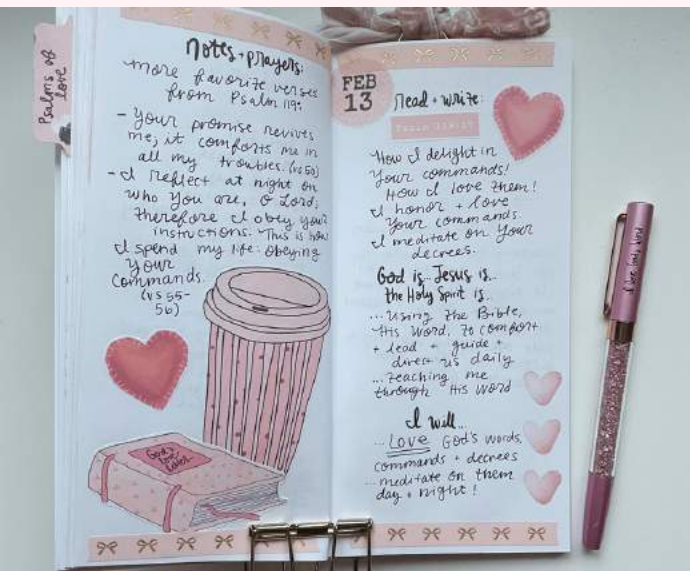 Psalms of
love
Notes + prayers:
more favorite verses
from Psalm 119:
- Your promise revives
me; it comforts me in
all my troubles. (vs 50)
- I reflect at night on
who You are, O Lord;
therefore I obey your
instructions. This is how
I spend my life: obeying
Your
commands.
(vs 55-
56)
God's
love
FEB
13
read + write:
How I delight in
Your commands!
How I love them!
I honor + love
Your commands.
I meditate on Your
decrees.
God is... Jesus is...
the Holy Spirit is...
... using the Bible,
His Word, to comfort
+ lead + guide +
direct us daily
... teaching me
through His Word
I will...
... Love God's words,
commands + decrees
... meditate on them
day + night!